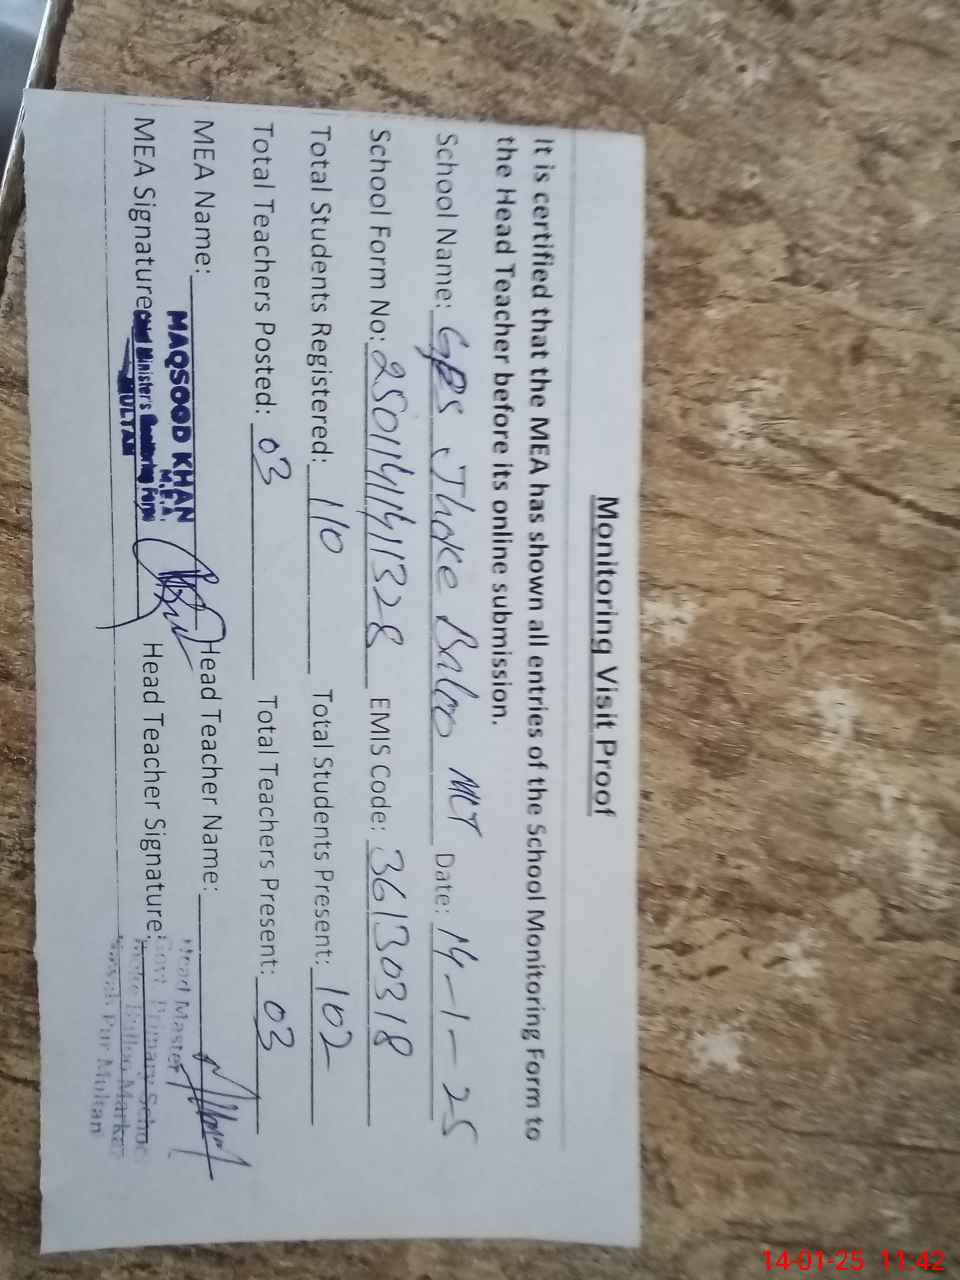 Monitoring Visit Proof
It is certified that the MEA has shown all entries of the School Monitoring Form to
the Head Teacher before its online submission.
School Name: GPS Jhoke Baloo MCT Date: 14-1-25
School Form No: 2501141411328 EMIS Code: 36130318
Total Students Registered: 110 Total Students Present: 102
Total Teachers Posted: 03 Total Teachers Present: 03
MEA Name: Head Teacher Name:
MAQSOOD KHAN
M.E.A.
MEA Signature: Head Teacher Signature:
Chief Minister's Monitoring Force
MULTAN
Head Master
Govt. Primary School
Jhoke Balloo Market
Nawab Pur Multan
14-01-25 11:42